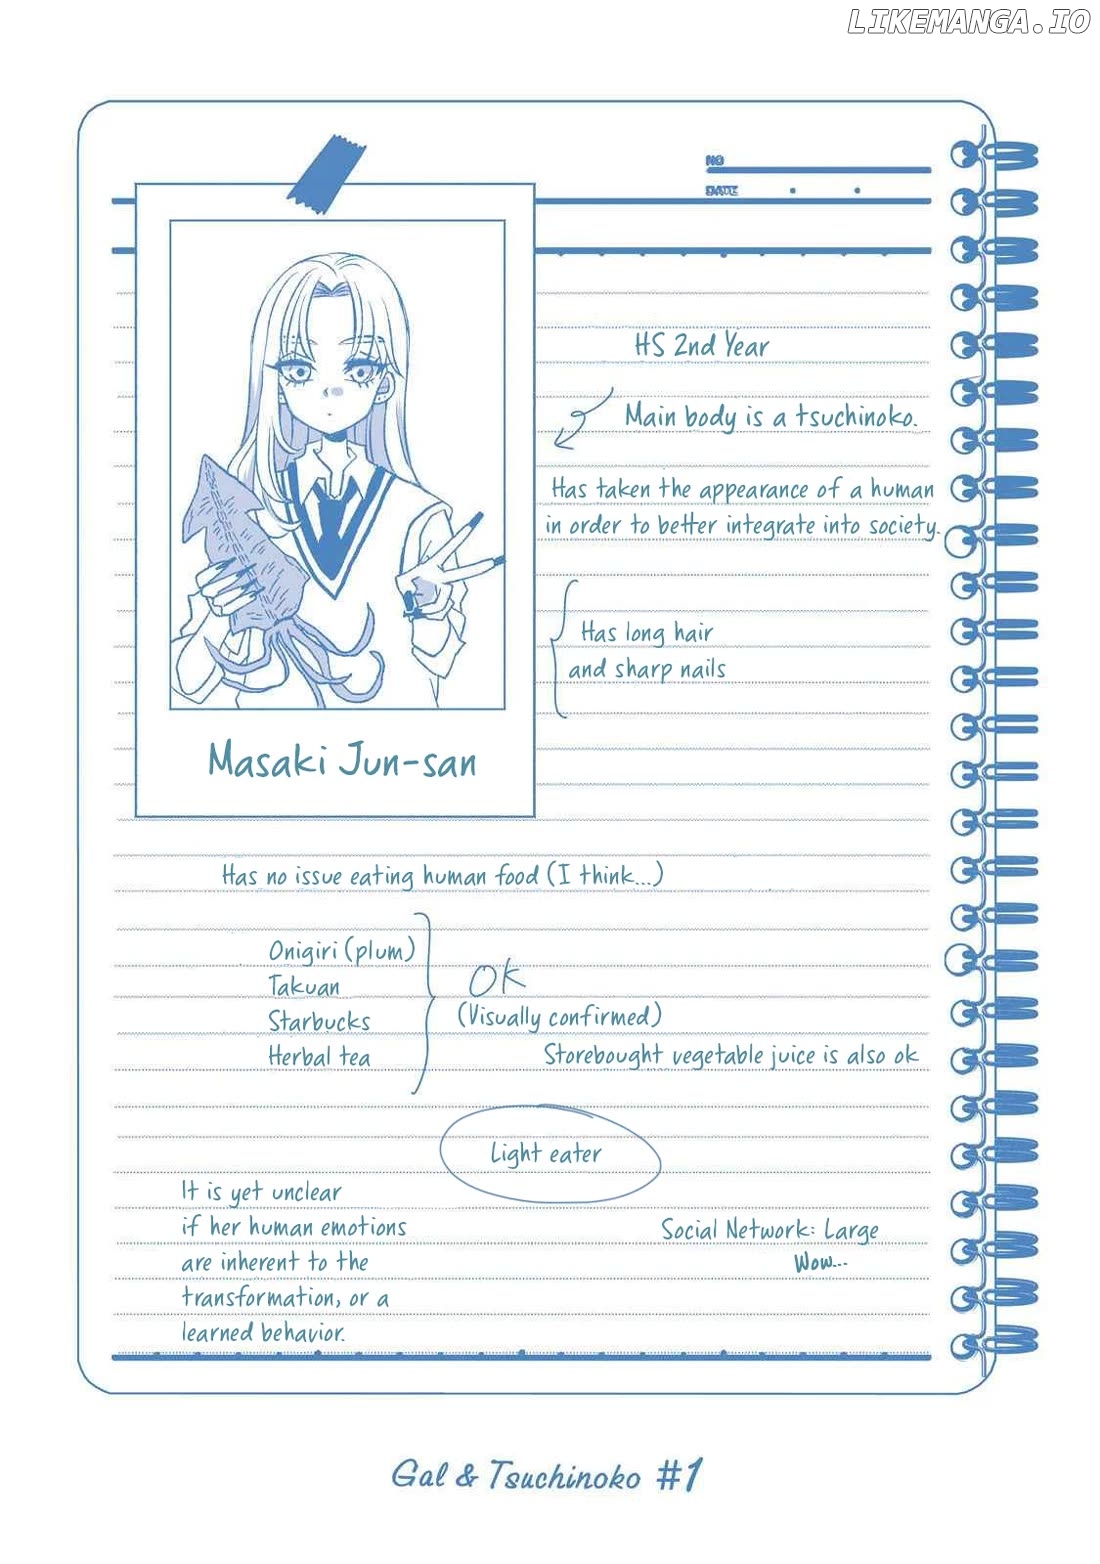 LIKEMANGA.IO
NO
DATE
HS 2nd Year
Main body is a tsuchinoko.
Has taken the appearance of a human
in order to better integrate into society.
Has long hair
and sharp nails
Masaki Jun-san
Has no issue eating human food (I think...)
Onigiri (plum)
Takuan
Starbucks
Herbal tea
OK
(Visually confirmed)
Storebought vegetable juice is also ok
Light eater
It is yet unclear
if her human emotions
are inherent to the
transformation, or a
learned behavior.
Social Network: Large
Wow...
Gal & Tsuchinoko #1